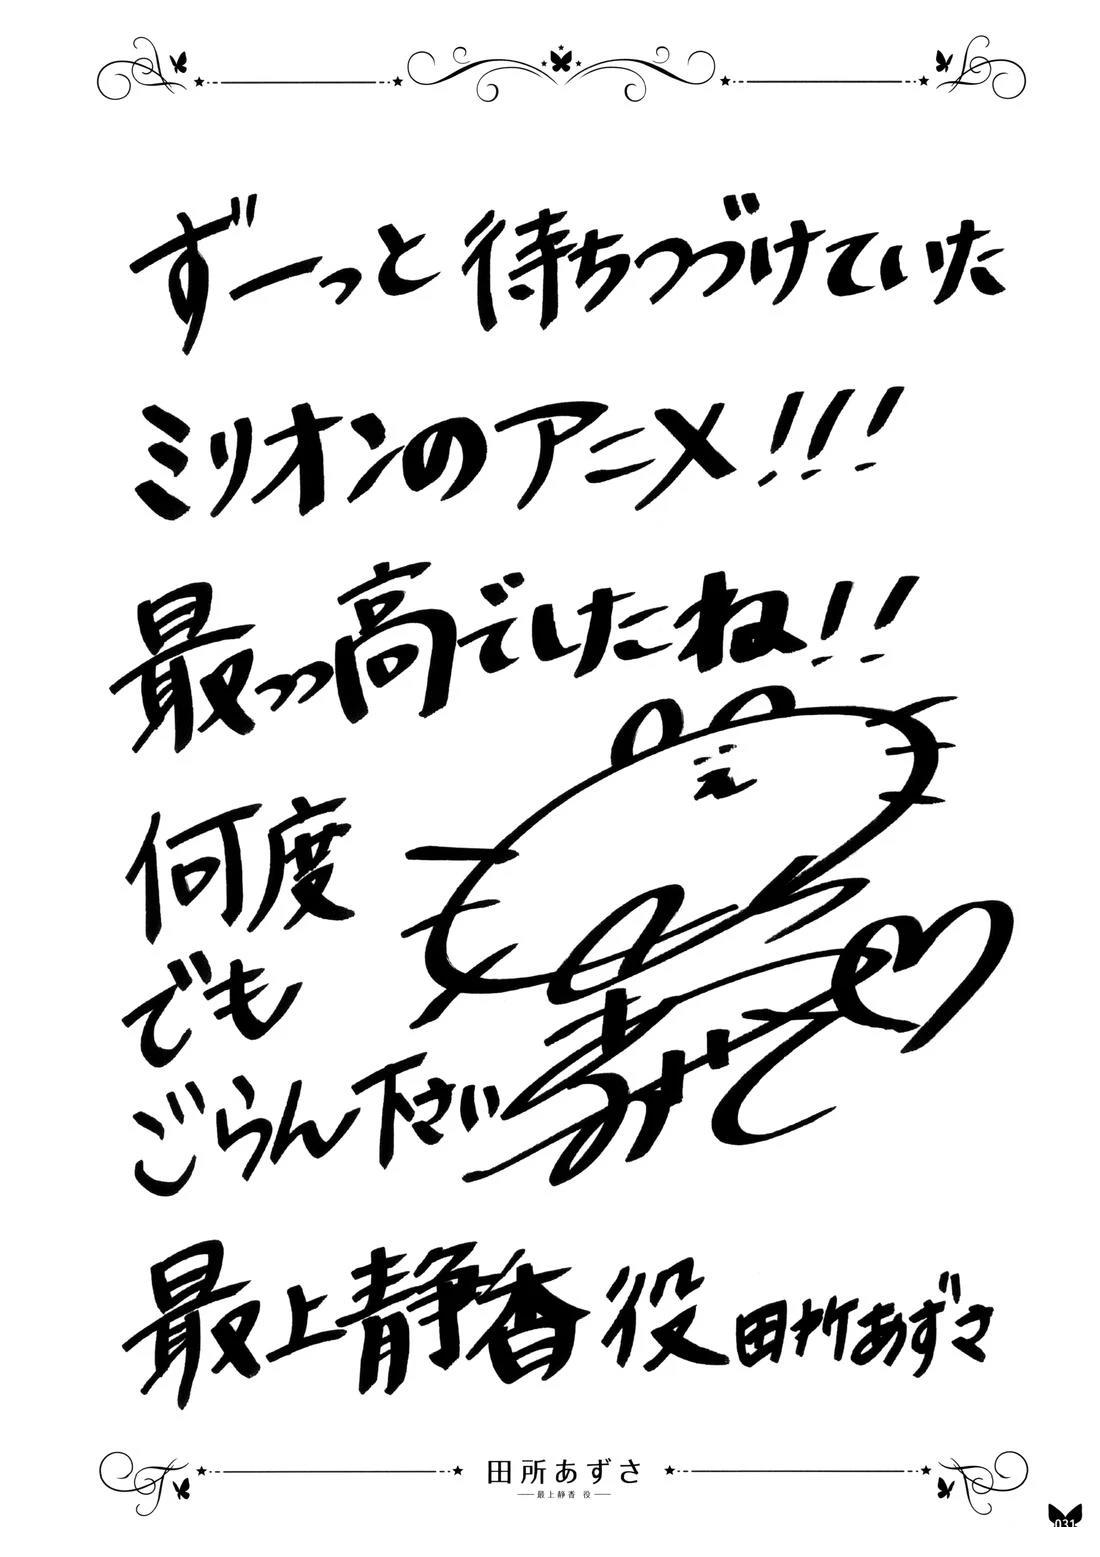 ずーっと待ちつづけていた
ミリオンのアニメ!!!
最っっ高でしたね!!
何度
でも
ごらん下さい
最上静香役 田所あずさ
田所あずさ
最上静香 役
031